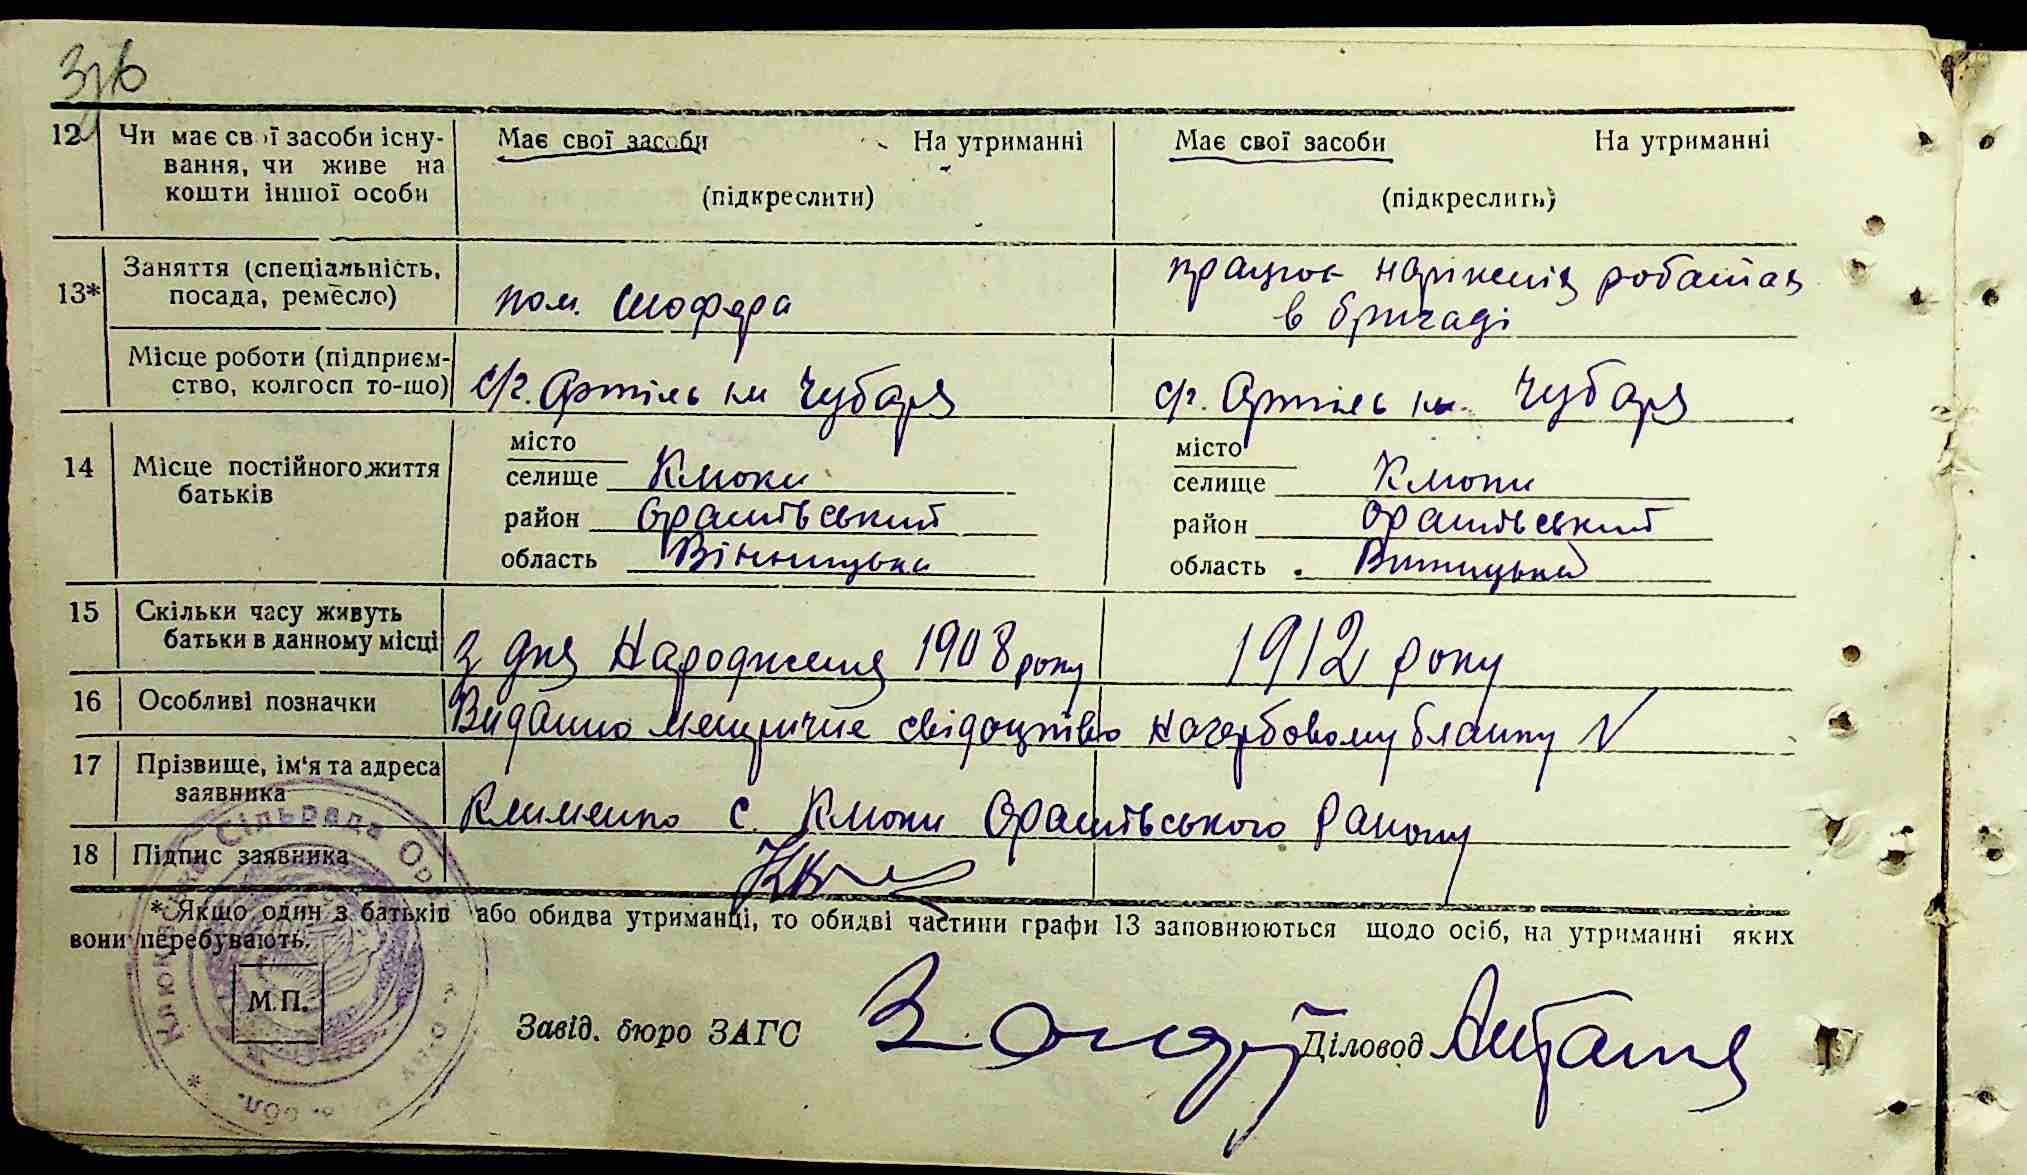 12 Чи має свої засоби існу- Має свої засоби На утриманні Має свої засоби На утриманні
вання, чи живе на
кошти іншої особи (підкреслити) (підкреслить)
13* Заняття (спеціальність, посада, ремесло) пом. шофера працює на різних роботах
в бригаді
Місце роботи (підприєм-
ство, колгосп то-що) с/г. Артіль ім Чубаря с/г. Артіль ім. Чубаря
14 Місце постійного життя батьків
місто місто
селище Клюки селище Клюки
район Оратівський район Оратівський
область Вінницька область Вінницька
15 Скільки часу живуть
батьки в данному місці з дня народження 1908 року 1912 року
16 Особливі позначки Видано метричне свідоцтво на гербовому бланку N
17 Прізвище, ім'я та адреса
заявника Клименко с. Клюки Оратівського району
18 Підпис заявника
* Якщо один з батьків або обидва утриманці, то обидві частини графи 13 заповнюються щодо осіб, на утриманні яких
вони перебувають.
М.П.
Сільрада
обл.
Завід. бюро ЗАГС Діловод